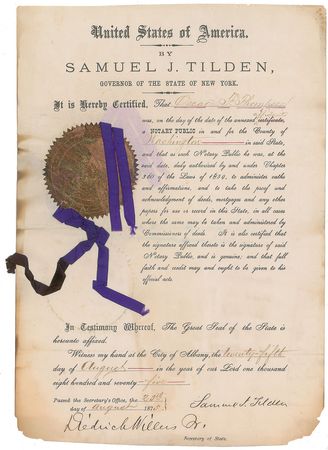 United States of America.
BY
SAMUEL J. TILDEN,
GOVERNOR OF THE STATE OF NEW YORK.
It is Hereby Certified, That Oscar F.
was, on the day of the date of the annexed certificate,
a NOTARY PUBLIC in and for the County of
Washington in said State,
and that as such Notary Public he was, at the
said date, duly authorized by and under Chapter
360 of the Laws of 1859, to administer oaths
and affirmations, and to take the proof and
acknowledgment of deeds, mortgages and any other
papers for use or record in this State, in all cases
where the same may be taken and administered by
Commissioners of deeds. It is also certified that
the signature affixed thereto is the signature of said
Notary Public, and is genuine; and that full
faith and credit may and ought to be given to his
official acts.
In Testimony Whereof, The Great Seal of the State is
hereunto affixed.
Witness my hand at the City of Albany, the twenty-fifth
day of August in the year of our Lord one thousand
eight hundred and seventy-five
Passed the Secretary's Office, the
day of August 1875
Samuel J. Tilden
Diedrich Willers Jr.
Secretary of State.